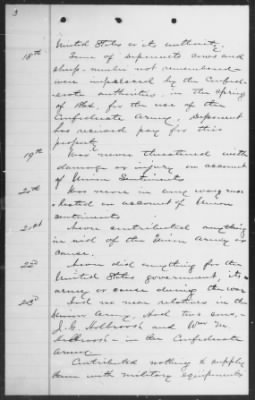 3
United States or its authority.
18th Some of deponents cows and
sheep - number not remembered -
were impressed by the Confed-
erate authorities, in the spring
of 186, for the use of the
Confederate Army, deponent
has received pay for this
property
19th Was never threatened with
damage or injury on account
of Union Sentiments
20th Was never in any way mo-
lested on account of Union
sentiments
21st Never contributed anything
in aid of the Union Army or
cause.
22d Never did anything for the
United States government, its
army or cause during the war
23d Had no near relatives in the
Union Army, Had two sons,-
J.C. Holbrook and Wm M.
Holbrook - in the Confederate
Army
Contributed nothing to supply
them with military equipments